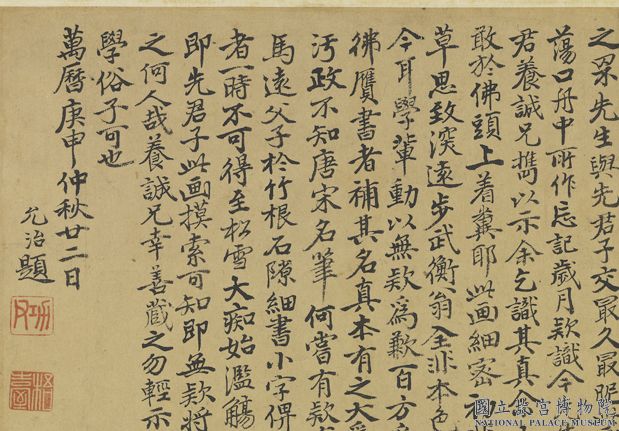 之罙先生與先君子交最久最昵
蕩口舟中所作忘記歲月欵識今
君養誠兄攜以示余乞識其真余
敢於佛頭上着糞耶此画細密
草思致深遠步武衡翁全非本色
今耳學輩動以無欵為歉百方
彿贋書者補其名真本有之大
汚政不知唐宋名筆何嘗有欵
馬遠父子於竹根石隙細書小字俾
者一時不可得至松雪大痴始濫觴
即先君子此画摸索可知即無欵將
之何人哉養誠兄幸善藏之勿輕示
學俗子可也
萬曆庚申仲秋廿二日
允治題
國立故宮博物院
NATIONAL PALACE MUSEUM